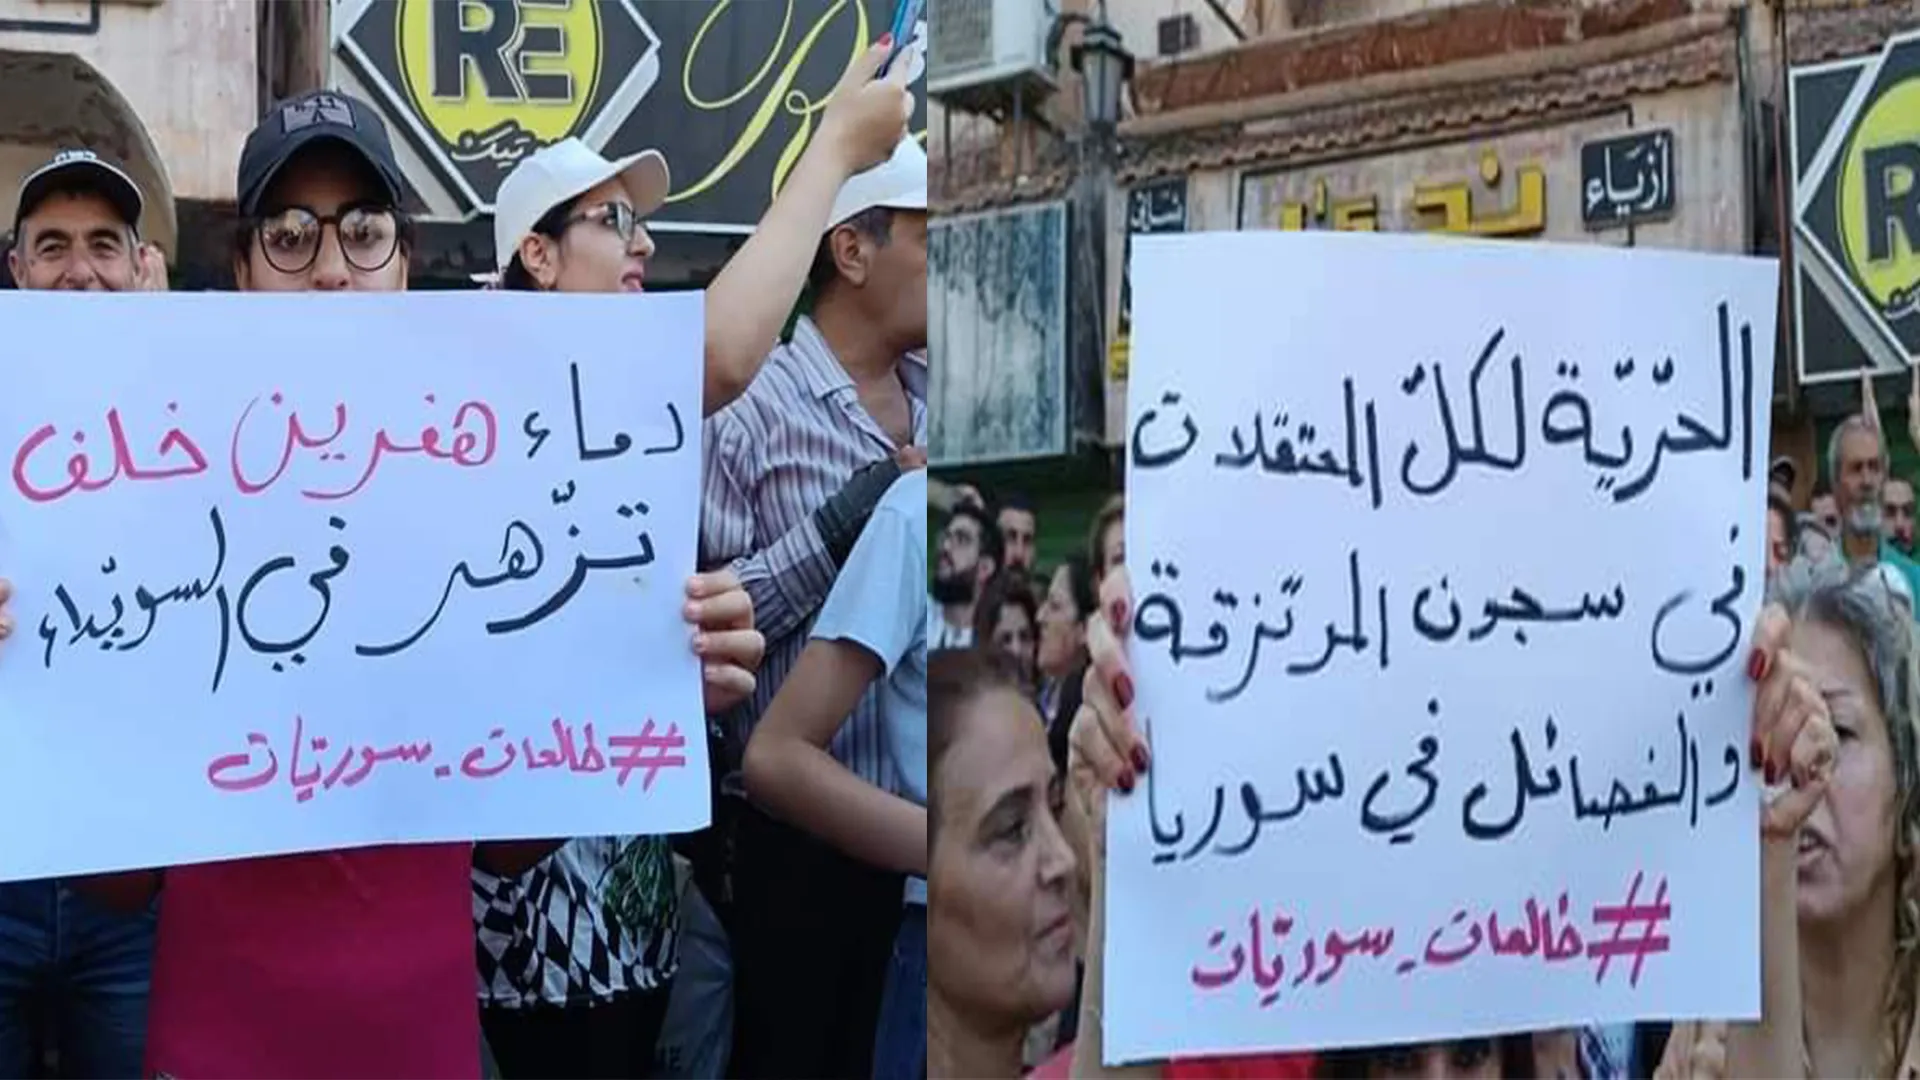 RE
بوتيك
دماء هفرين خلف
تزّهر في السويّداء
#طالعات_سوريّات
أزياء
الحرّيّة لكلّ المعتقلات
في سجون المرتزقة
والفصائل في سوريا
#طالعات_سوريّات